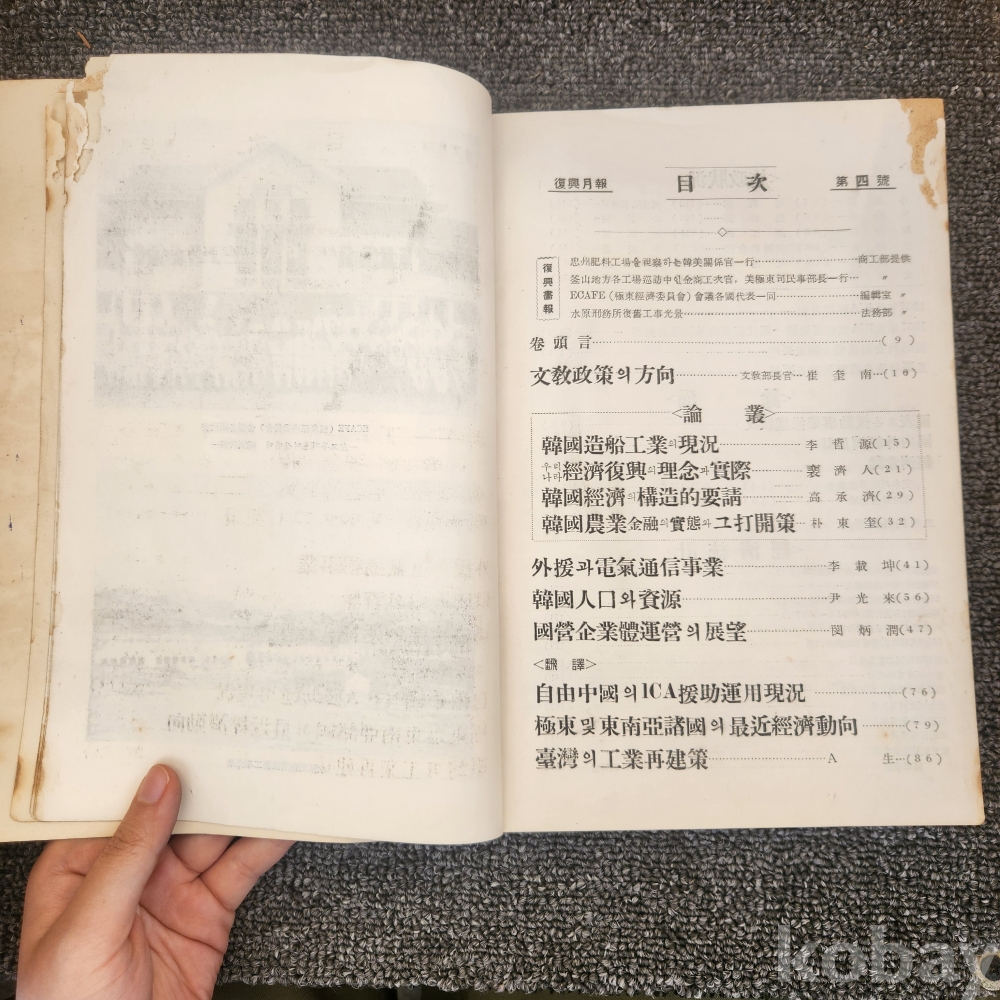 復興月報 目次 第四號
復興畵報
忠州肥料工場을視察하는韓美關係官一行 商工部提供
釜山地方各工場巡訪中인金商工次官，美極東司民事部長一行 〃
ECAFE (極東經濟委員會) 會議各國代表一同 編輯室 〃
水原刑務所復舊工事光景 法務部 〃
卷頭言 (9)
文敎政策의方向 文敎部長官 崔奎南 (10)
<論叢>
韓國造船工業의現況 李哲源(15)
우리나라經濟復興의理念과實際 裵濟人(21)
韓國經濟의構造的要請 高承濟(29)
韓國農業金融의實態와그打開策 朴東奎(32)
外援과電氣通信事業 李載坤(41)
韓國人口와資源 尹光來(56)
國營企業體運營의展望 閔炳潤(47)
<飜譯>
自由中國의ICA援助運用現況 (76)
極東및東南亞諸國의最近經濟動向 (79)
臺灣의工業再建策 A生 (86)
kobay